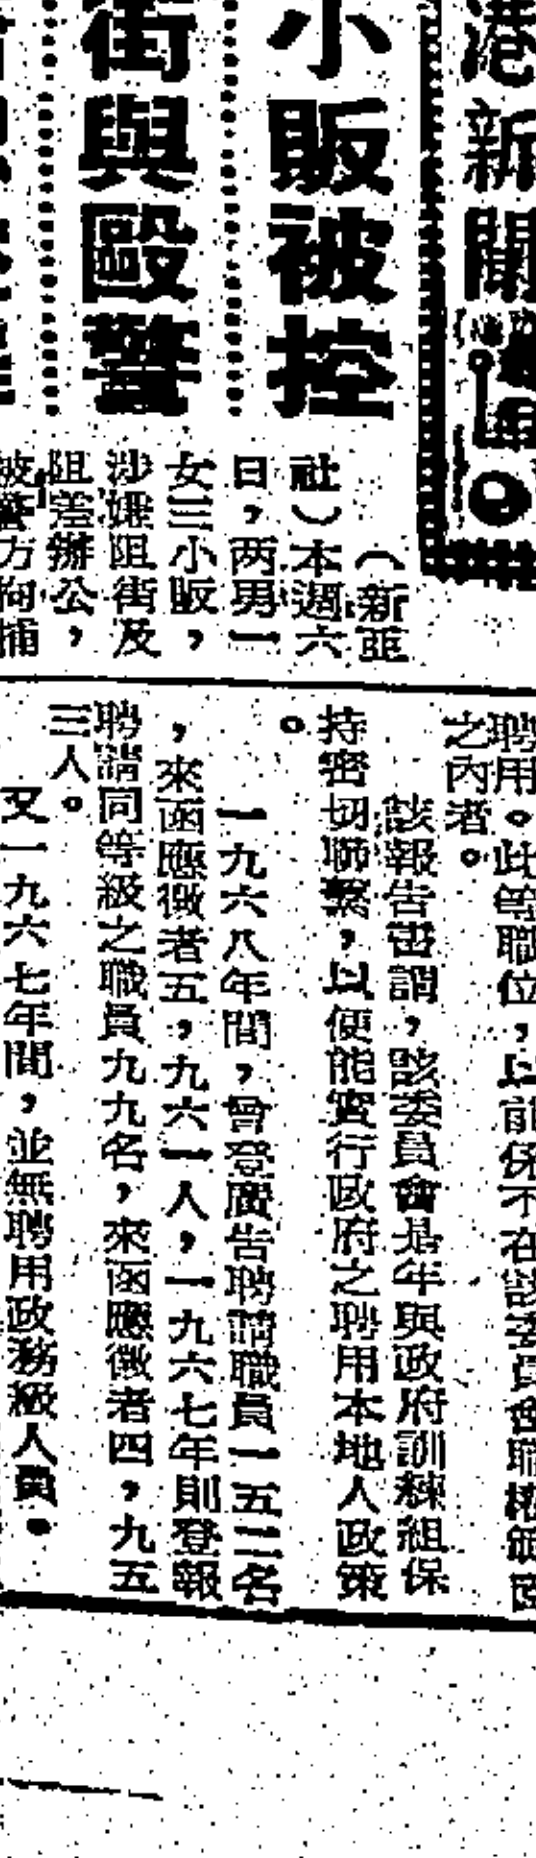 港新聞
小販被控
街與毆警
（新亞
社）本週六
日，两男一
女三小販，
涉嫌阻街及
阻差辦公，
被警方拘捕
聘用。此等職位，以前係不在該委員會職權範圍
之內者。
該報告書謂，該委員會是年與政府訓練組保
持密切聯繫，以便能實行政府之聘用本地人政策
。
一九六八年間，曾登廣告聘請職員一五二名
，來函應徵者五，九六一人，一九六七年則登報
聘請同等級之職員九九名，來函應徵者四，九五
三人。
又一九六七年間，並無聘用政務級人員。